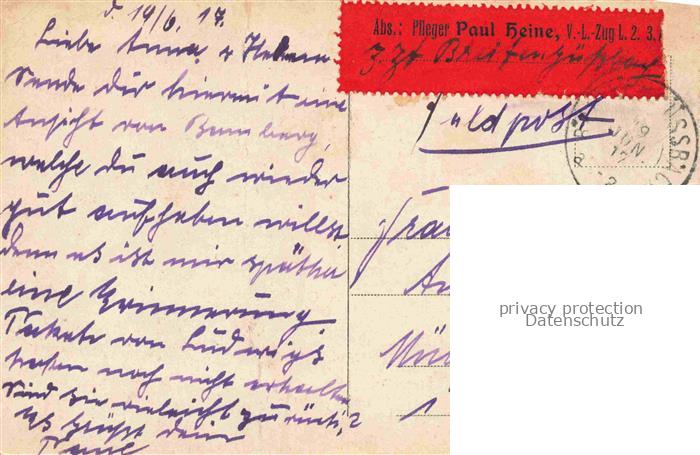 d. 19/6. 17.
Liebe Anna u
Sende dir hiermit eine
Ansicht von Bamberg,
welche du auch wieder
gut aufheben willst
denn es ist mir späther
eine Erinnerung
Pakete von Ludwigs
haben noch nicht erhalten
Sind sie vieleicht zurück?
Es grüßt dein
Paul
Abs.: Pfleger Paul Heine, V.-L.-Zug L. 2. 3.
z. Zt. Breitengüßbach
Feldpost
SSBAC
19
JUN
17
Frau
An
Mün
1
privacy protection
Datenschutz